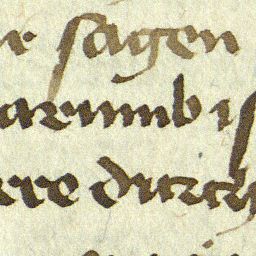 r sagen
arumb is
rre durch